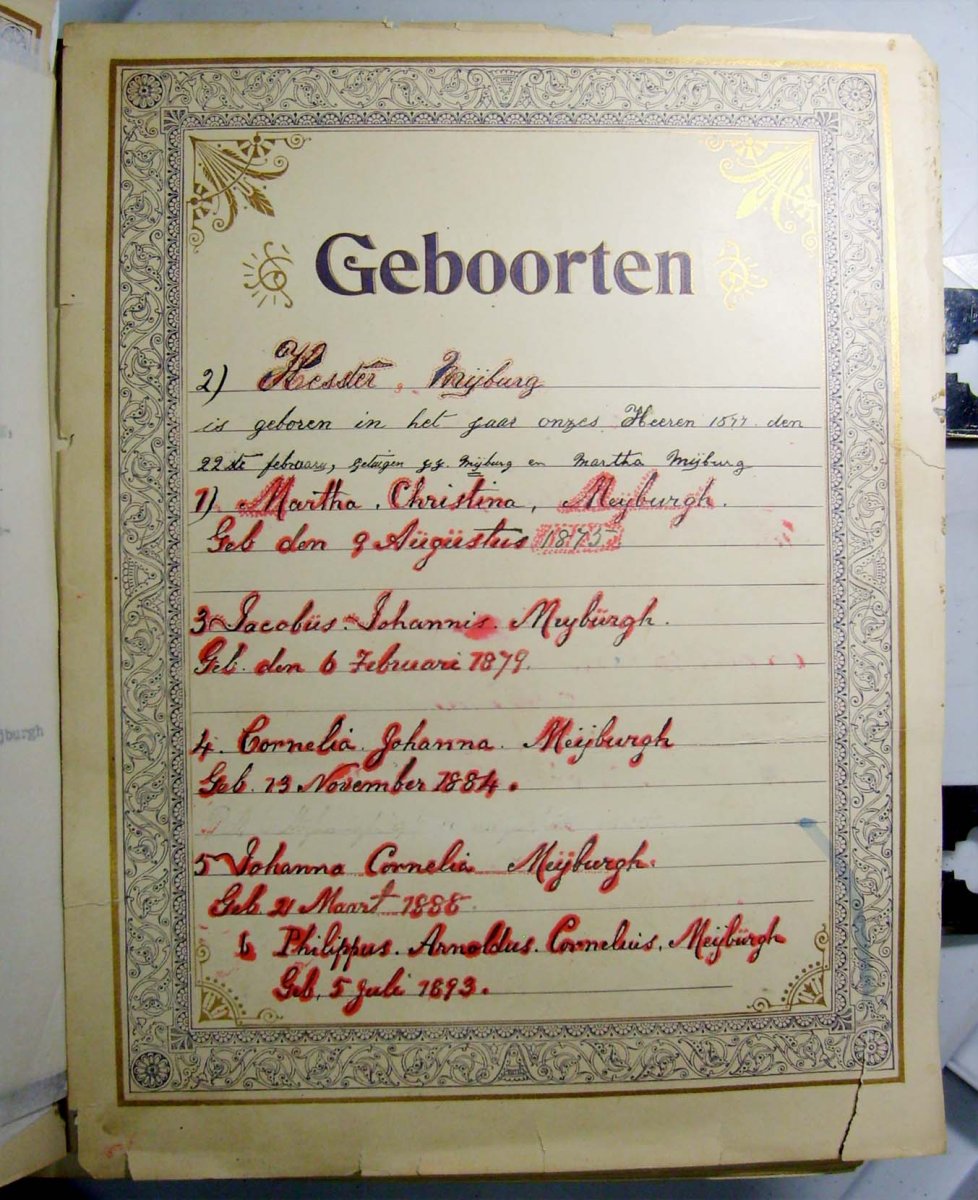 Geboorten
2) Hester, Mijburg
is geboren in het jaar onzes Heeren 1877 den
22ste februarij, getuigen J.J. Mijburg en Martha Mijburg
1) Martha. Christina, Meijburgh.
Geb den 9 Aügüstus 1875
3 Jacobüs. Johannis. Meyburgh.
Geb. den 6 Februari 1879.
4. Cornelia. Johanna. Meijburgh
Geb. 13 November 1884.
5 Johanna Cornelia Meijburgh.
Geb. 21 Maart 1888.
6 Philippus. Arnoldus. Cornelius. Meijburgh
Geb. 5 Juli 1893.
jburgh